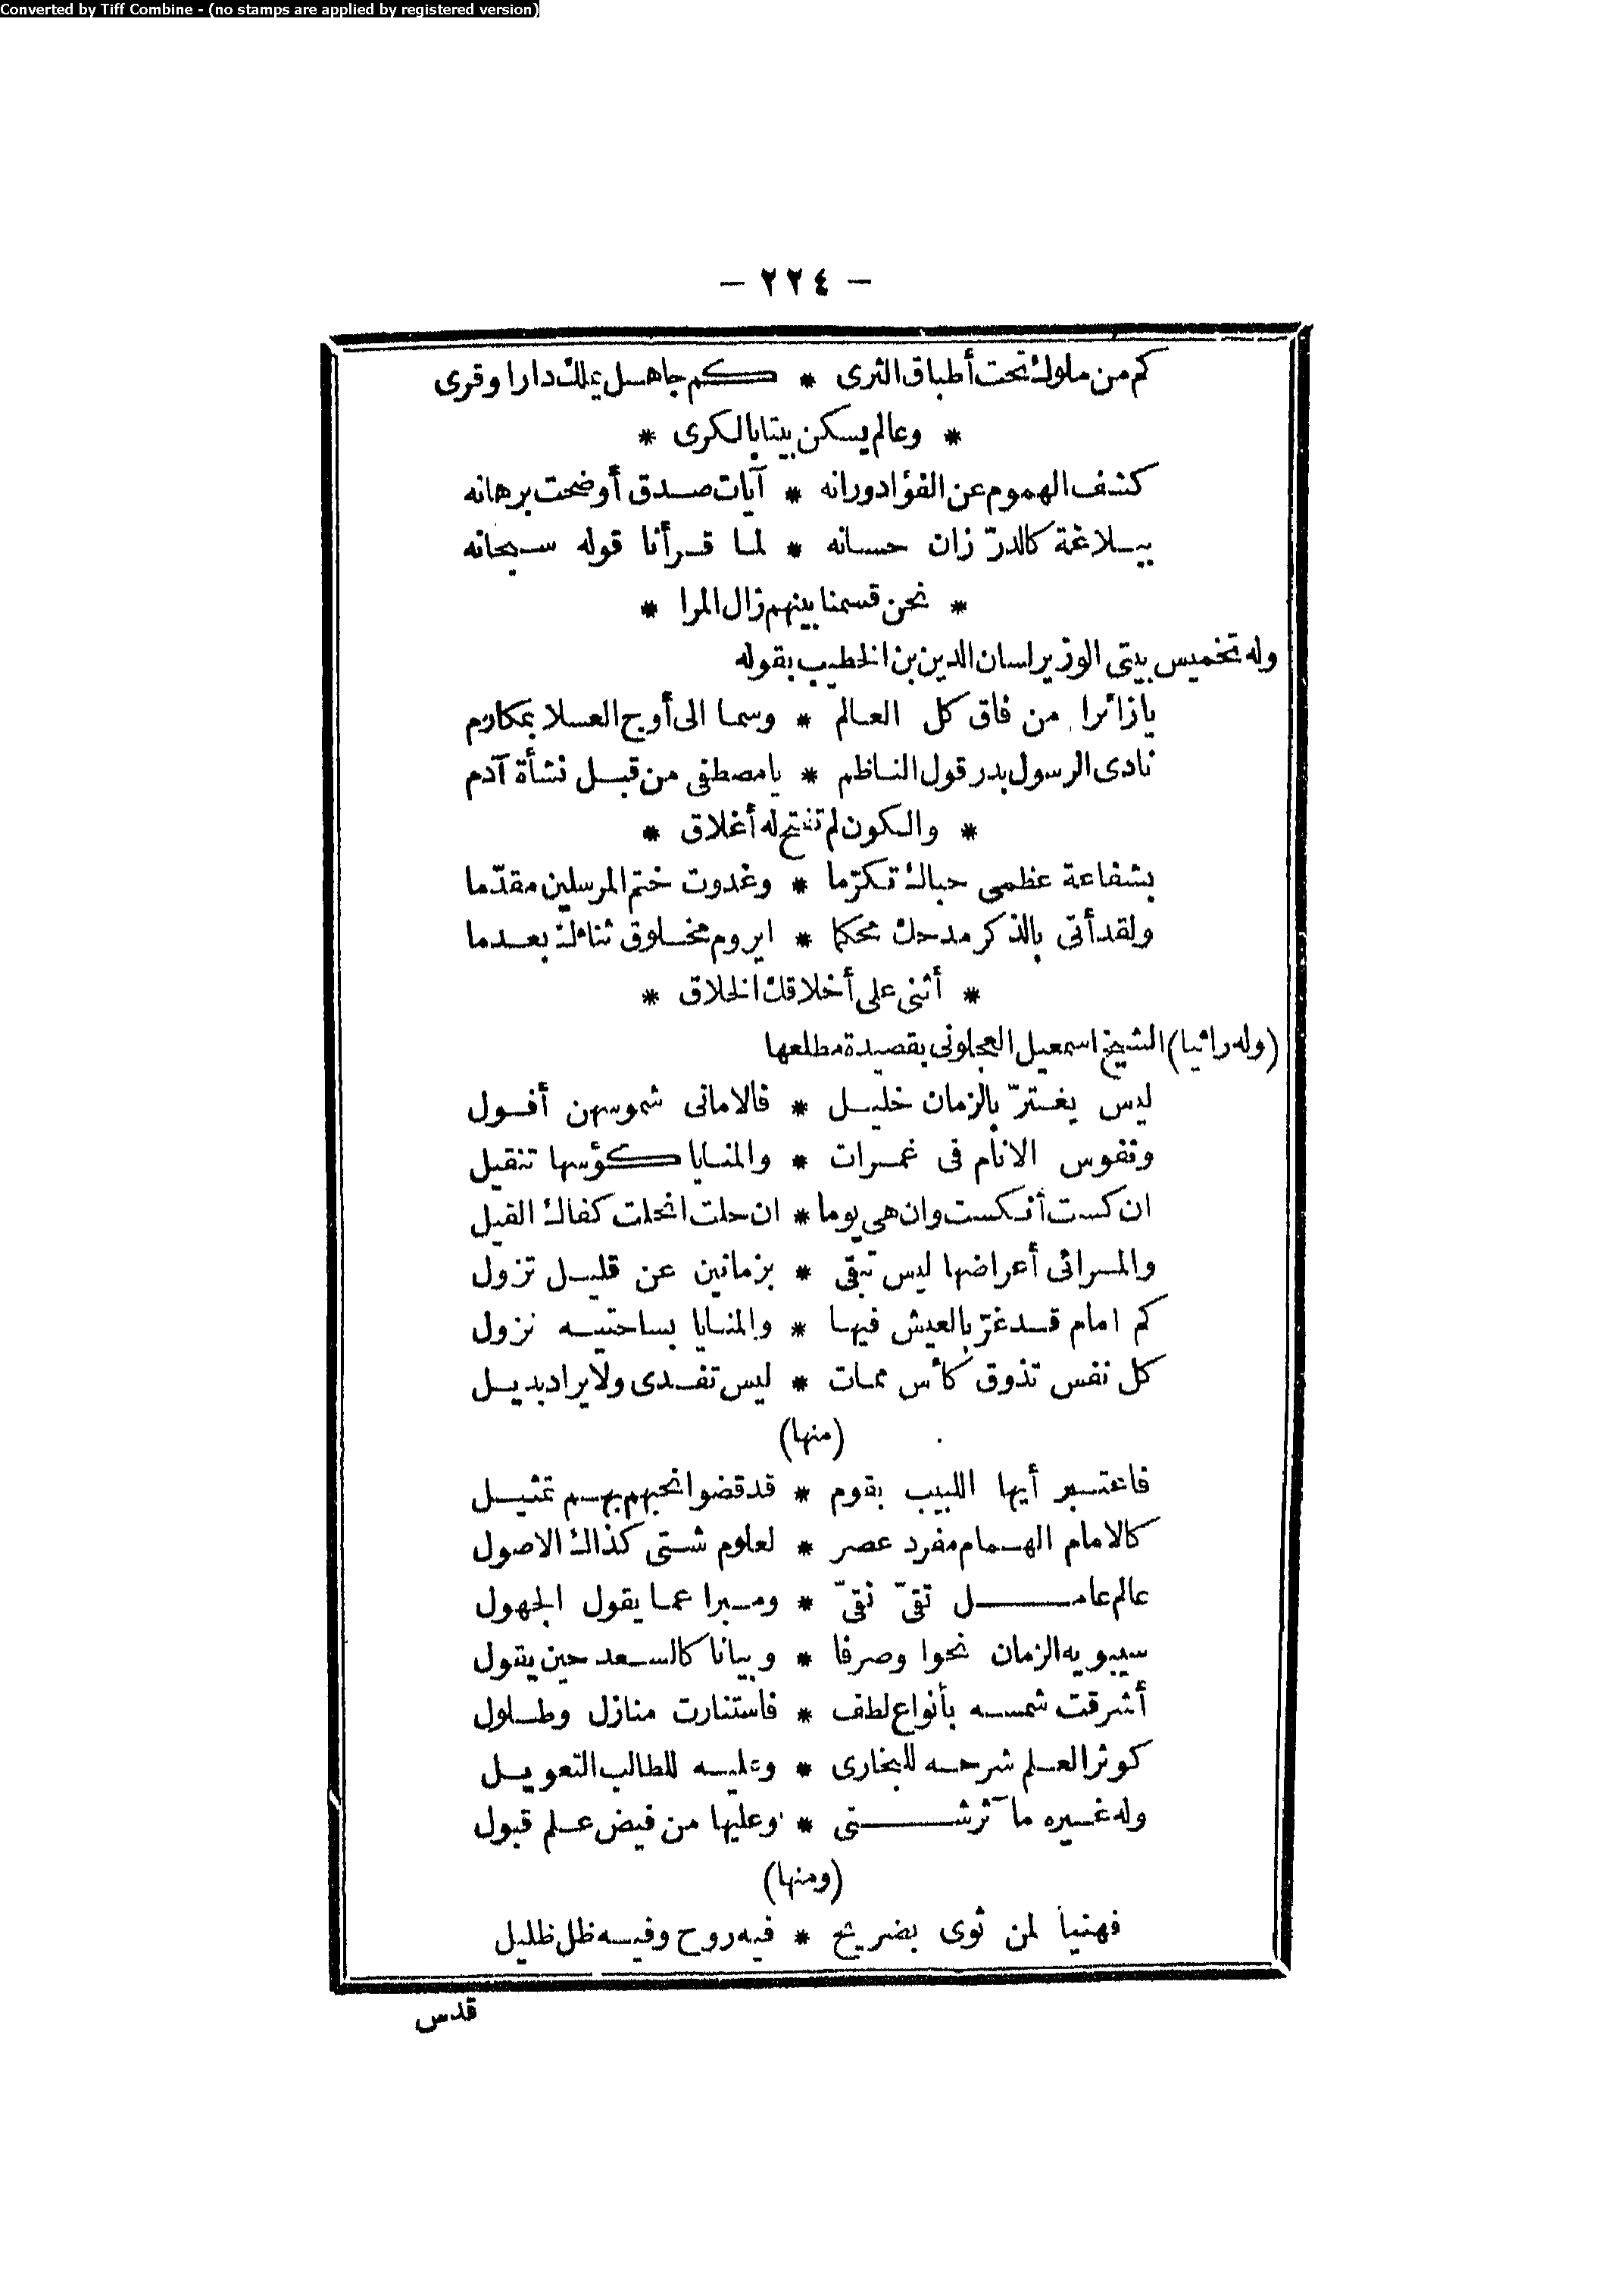 Converted by Tiff Combine - (no stamps are applied by registered version)
— ٢٢٤ —
كم من ملوك تحت أطباق الثرى * كم جاهل يملك دارا وقرى
* وعالم يسكن بيتا بالكرى *
كشف الهموم عن الفؤاد ورانه * آيات صدق أوضحت برهانه
ببلاغة كالدرّ زان حسانه * لما قرأنا قوله سبحانه
* نحن قسمنا بينهم زال المرا *
وله تخميس بيتى الوزير لسان الدين بن الخطيب بقوله
يازائرا من فاق كل العالم * وسما الى أوج العلا بمكارم
نادى الرسول بدر قول الناظم * يا مصطفى من قبل نشأة آدم
* والكون لم تفتح له أغلاق *
بشفاعة عظمى حباك تكرّما * وغدوت ختم المرسلين مقدّما
ولقد أتى بالذكر مدحك محكما * ايروم مخلوق ثناءك بعدما
* أثنى على أخلاقك الخلاق *
(وله راثيا) الشيخ اسمعيل العجلونى بقصيدة مطلعها
ليس يغترّ بالزمان خليل * فالامانى شموسهن أفول
ونفوس الانام فى غمرات * والمنايا كؤسها تنقيل
ان كست أنكست وان هى يوما * ان حلت انحلت كفاك القيل
والمرائى أعراضها ليس تبقى * بزمانين عن قليل تزول
كم امام قد غرّ بالعيش فيها * والمنايا بساحتيه نزول
كل نفس تذوق كأس ممات * ليس تفدى ولا يراد بديل
(منها)
فاعتبر أيها اللبيب بقوم * قد قضوا نحبهم بهم تمثيل
كالامام الهمام مفرد عصر * لعلوم شتى كذاك الاصول
عالم عامل تقىّ نقىّ * ومبرا عما يقول الجهول
سيبويه الزمان نحوا وصرفا * وبيانا كالسعد حين يقول
أشرقت شمسه بأنواع لطف * فاستنارت منازل وطلول
كوثر العلم شرحه للبخارى * وعليه للطالب التعويل
وله غيره مآثر شتى * وعليها من فيض علم قبول
(ومنها)
فهنيأ لمن ثوى بضريح * فيه روح وفيه ظل ظليل
قدس